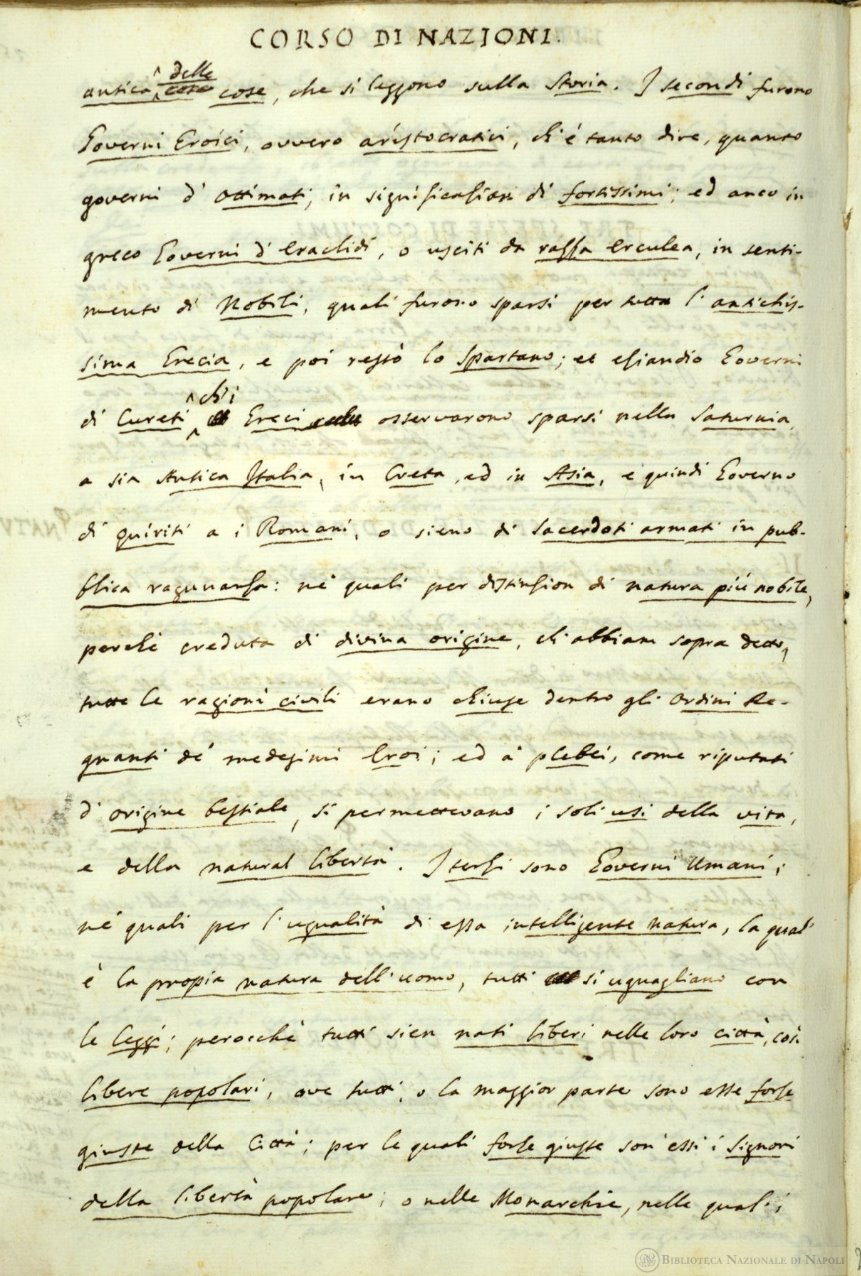 CORSO DI NAZIONI.
antica delle cose, che si leggono sulla Storia. I secondi furono
Governi Eroici, ovvero aristocratici, ch'è tanto dire, quanto
governi d' Ottimati, in significazion di fortissimi; ed anco in
greco Governi d' Eraclidi, o usciti da razza Erculea, in senti-
mento di Nobili, quali furono sparsi per tutta l' antichis-
sima Grecia, e poi restò lo Spartano; et eziandio Governi
di Cureti ch'i Greci osservarono sparsi nella Saturnia,
o sia Antica Italia, in Creta, ed in Asia, e quindi Governo
di quiriti a i Romani, o sieno di Sacerdoti armati in pub-
blica ragunanza: ne' quali per distinzion di natura più nobile,
perchè creduta di divina origine, ch'abbiam sopra detto,
tutte le ragioni civili erano chiuse dentro gli Ordini Re-
gnanti de' medesimi Eroi; ed a' plebei, come riputati
d' origine bestiale, si permettevano i soli usi della vita,
e della natural libertà. I terzi sono Governi Umani;
ne' quali per l' ugualità di essa intelligente natura, la qual'
è la propia natura dell' uomo, tutti si uguagliano con
le leggi; perocchè tutti sien nati liberi nelle loro città, così
libere popolari, ove tutti, o la maggior parte sono esse forze
giuste della Città; per le quali forze giuste son' essi i Signori
della libertà popolare; o nelle Monarchie, nelle quali i
BIBLIOTECA NAZIONALE DI NAPOLI